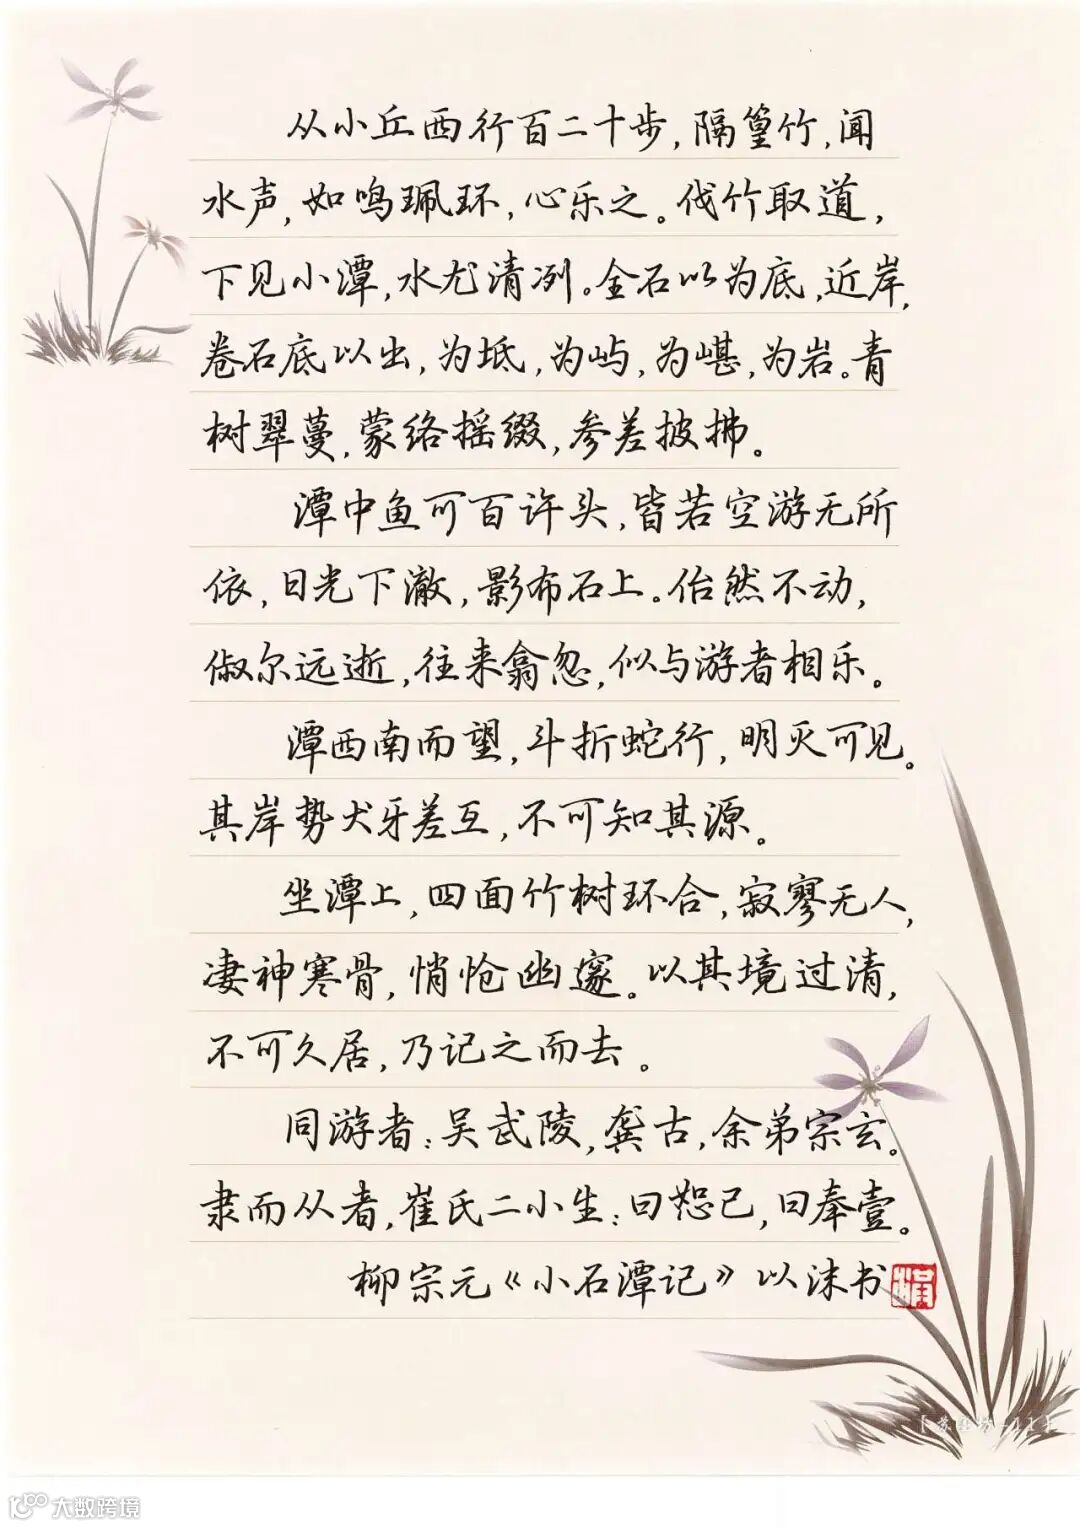 从小丘西行百二十步,隔篁竹,闻
水声,如鸣珮环,心乐之。伐竹取道,
下见小潭,水尤清冽。金石以为底,近岸,
卷石底以出,为坻,为屿,为嵁,为岩。青
树翠蔓,蒙络摇缀,参差披拂。
潭中鱼可百许头,皆若空游无所
依,日光下澈,影布石上。佁然不动,
俶尔远逝,往来翕忽,似与游者相乐。
潭西南而望,斗折蛇行,明灭可见。
其岸势犬牙差互,不可知其源。
坐潭上,四面竹树环合,寂寥无人,
凄神寒骨,悄怆幽邃。以其境过清,
不可久居,乃记之而去。
同游者:吴武陵,龚古,余弟宗玄。
隶而从者,崔氏二小生:曰恕己,曰奉壹。
柳宗元《小石潭记》以沫书
大数跨境